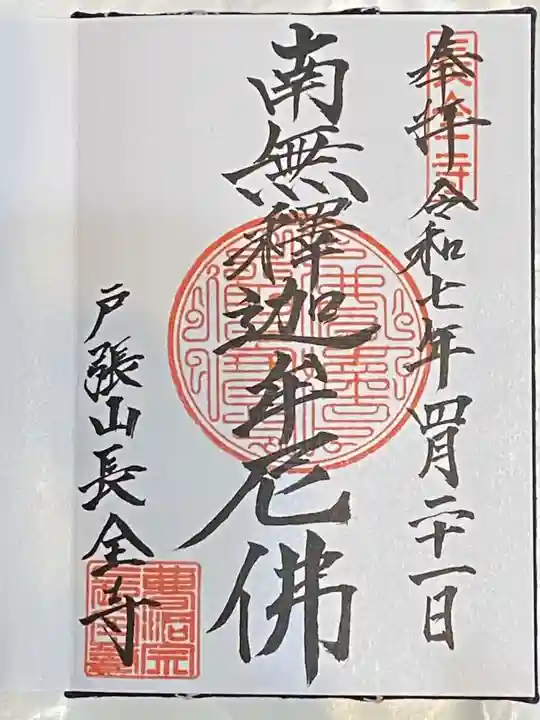 奉拝 令和七年四月二十一日
長全寺
南無釋迦牟尼佛
戸張山長全寺